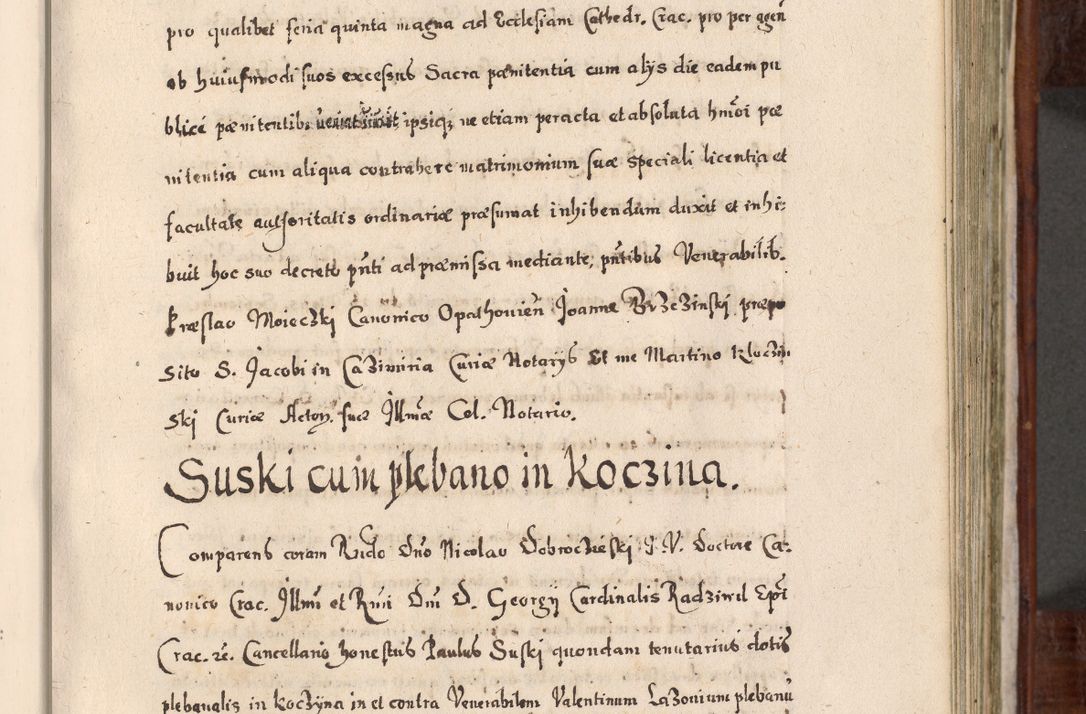 pro qualibet feria quinta magna ad Ecclesiam Cathedr. Crac. pro per ggeñ
ob huiusmodi suos excessus Sacra pænitentia cum alÿs die eadem pu
blice pænitentib. ipsiq; ne etiam peracta et absoluta hmõi pæ
nitentia cum aliqua contrahere matrimonium suæ speciali licentia et
facultate authoritatis ordinariæ præsumat inhibendum duxit et inhi:
buit hoc suo decreto pñti ad præmissa mediante, pñtibus Venerabilib.
Præslao Moieczki Canonico Opathouieñ Joanne Brzezinski præpo
sito S. Jacobi in Cazimiria Curiæ Notarÿs Et me Martino Kloczin
ski Curiæ Acton. suæ Jllmæ Cel. Notario.
Suski cum plebano in Koczina.
Comparens coram Rndo Dno Nicolao Dobrocieski J. V. Doctore Ca:
nonico Crac. Jllmi et Rmi Dni D. Georgÿ Cardinalis Radziwil Epi
Crac. zc. Cancellario honestus Paulus Suski quondam tenutarius dotis
plebanalis in Koczÿna in et contra Venerabilem Valentinum Lazonium plebanũ